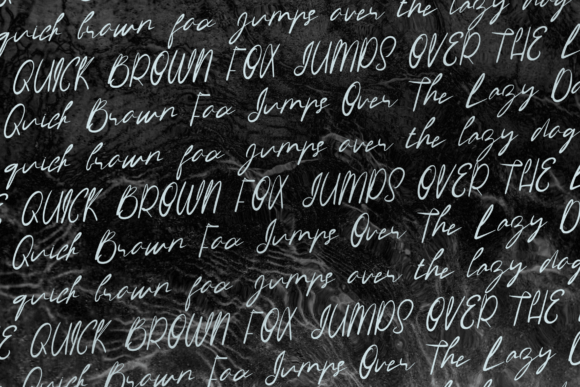 quick brown fox jumps over the lazy dog
QUICK BROWN FOX JUMPS OVER THE L
Quick Brown Fox Jumps Over The Lazy Do
quick brown fox jumps over the lazy dog
E QUICK BROWN FOX JUMPS OVER THE L
Quick Brown Fox Jumps Over The Lazy D
quick brown fox jumps over the lazy dog
E QUICK BROWN FOX JUMPS OVER THE
Quick Brown Fox Jumps Over The Lazy
quick brown fox jumps over the lazy